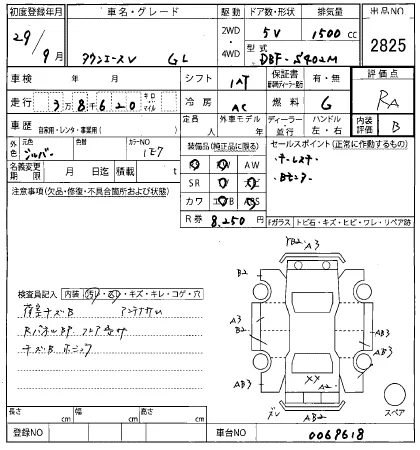 初度登録年月 車名・グレード 駆動 ドア数・形状 排気量 出品NO
29年 9月 タウンエースV GL 2WD・4WD 5V 1500cc 2825
型式 DBF-S402M
車検 年 月 シフト IAT 保証書 有・無 評価点
走行 38620 キロ マイル 冷房 AC 燃料 G RA
車歴 自家用・レンタ・事業用( ) 定員 人 外車モデル 年 ディーラー 並行 ハンドル 左・右 内装評価 B
外色 元色 シルバー 色替 カラーNO 1E7 装備品(純正品に限る) セールスポイント(正常に作動するもの)
名義変更期限 月 日迄 積載 t
SR
カワ
R券 8,250円
キーレス
Bモニター
注意事項(欠品・修復・不具合箇所および状態)
Fガラス トビ石・キズ・ヒビ・ワレ・リペア跡
検査員記入 内装 キズ・キレ・コゲ・穴
荷室キズB アンテナ
RパネルBP フロア
キズB
A3
B2
B2
A3
A3
B2
A3
AB3
AB3
XX
A2
AB2
スペア
長さ cm 幅 cm 高さ cm
登録NO 車台NO 0069618